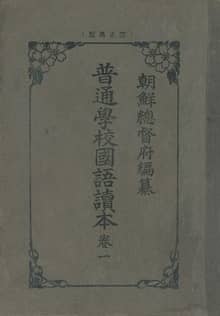 朝鮮總督府編纂
普通學校國語讀本 卷一